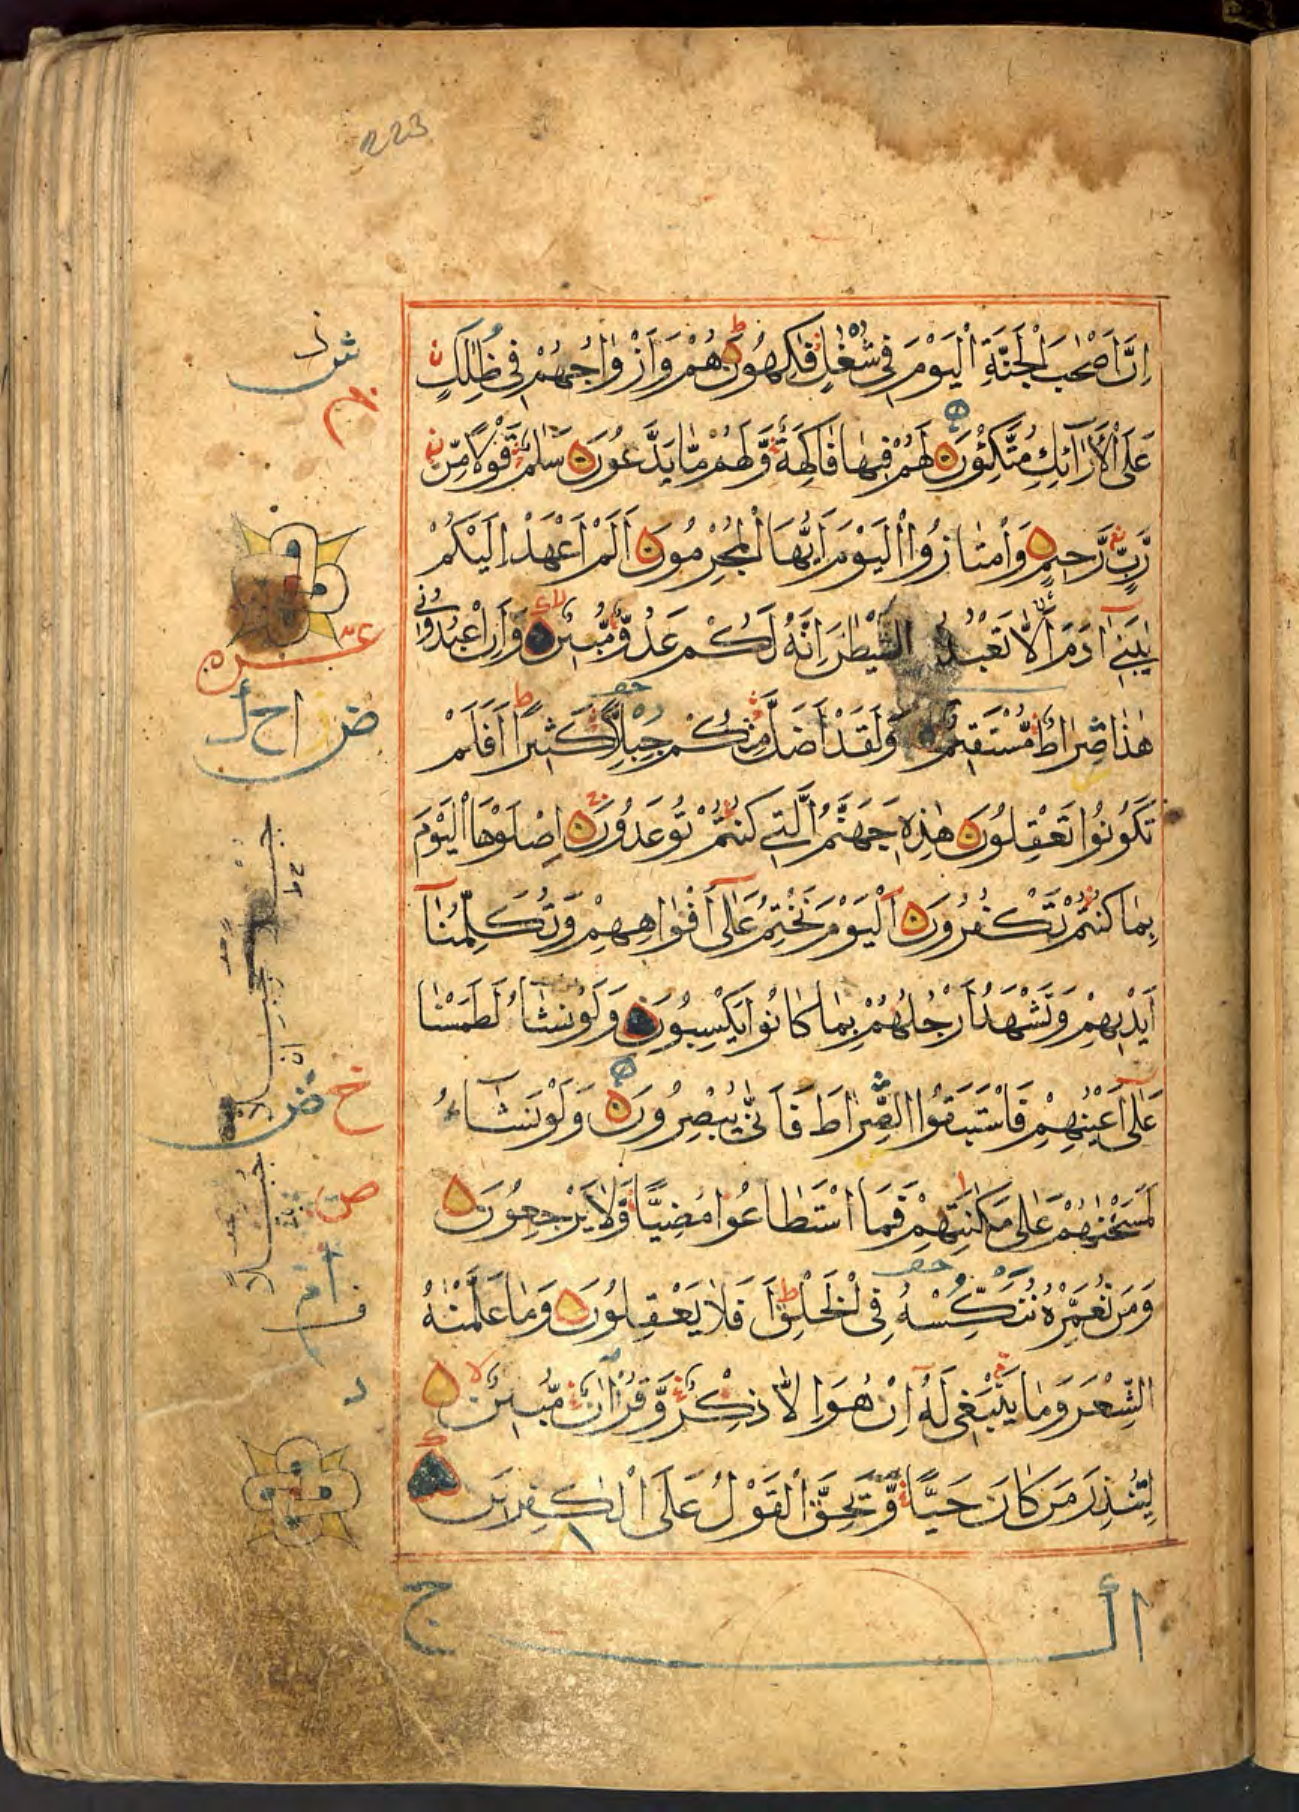 223
اِنَّ اَصْحٰبَ الْجَنَّةِ الْيَوْمَ فِى شُغُلٍ فٰكِهُونَ هُمْ وَاَزْوٰاجُهُمْ فِى ظِلٰلٍ
عَلَى الْاَرَآئِكِ مُتَّكِئُونَ لَهُمْ فِيهٰا فٰاكِهَةٌ وَّلَهُمْ مٰا يَدَّعُونَ سَلٰمٌ قَوْلًا مِّنْ
رَّبٍّ رَّحِيمٍ وَامْتٰازُوا الْيَوْمَ اَيُّهَا الْمُجْرِمُونَ اَلَمْ اَعْهَدْ اِلَيْكُمْ
يٰبَنِىٓ اٰدَمَ اَلّٰا تَعْبُدُوا الشَّيْطٰنَ اِنَّهُ لَكُمْ عَدُوٌّ مُّبِينٌ وَاَنِ اعْبُدُونِى
هٰذٰا صِرٰاطٌ مُّسْتَقِيمٌ وَلَقَدْ اَضَلَّ مِنْكُمْ جِبِلًّا كَثِيرًا اَفَلَمْ
تَكُونُوا تَعْقِلُونَ هٰذِهِ جَهَنَّمُ الَّتِى كُنْتُمْ تُوعَدُونَ اِصْلَوْهَا الْيَوْمَ
بِمٰا كُنْتُمْ تَكْفُرُونَ اَلْيَوْمَ نَخْتِمُ عَلٰىٓ اَفْوٰاهِهِمْ وَتُكَلِّمُنٰآ
اَيْدِيهِمْ وَتَشْهَدُ اَرْجُلُهُمْ بِمٰا كٰانُوا يَكْسِبُونَ وَلَوْ نَشٰآءُ لَطَمَسْنٰا
عَلٰىٓ اَعْيُنِهِمْ فَاسْتَبَقُوا الصِّرٰاطَ فَاَنّٰى يُبْصِرُونَ وَلَوْ نَشٰآءُ
لَمَسَخْنٰهُمْ عَلٰى مَكٰنَتِهِمْ فَمَا اسْتَطٰاعُوا مُضِيًّا وَّلٰا يَرْجِعُونَ
وَمَنْ نُعَمِّرْهُ نُنَكِّسْهُ فِى الْخَلْقِ اَفَلٰا يَعْقِلُونَ وَمٰا عَلَّمْنٰهُ
الشِّعْرَ وَمٰا يَنْبَغِى لَهُ اِنْ هُوَ اِلّٰا ذِكْرٌ وَّقُرْاٰنٌ مُّبِينٌ
لِيُنْذِرَ مَنْ كٰانَ حَيًّا وَّيَحِقَّ الْقَوْلُ عَلَى الْكٰفِرِينَ